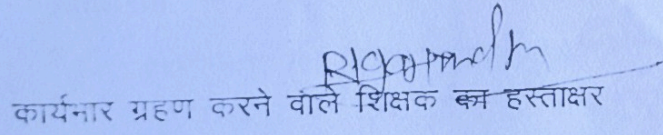 कार्यभार ग्रहण करने वाले शिक्षक का हस्ताक्षर